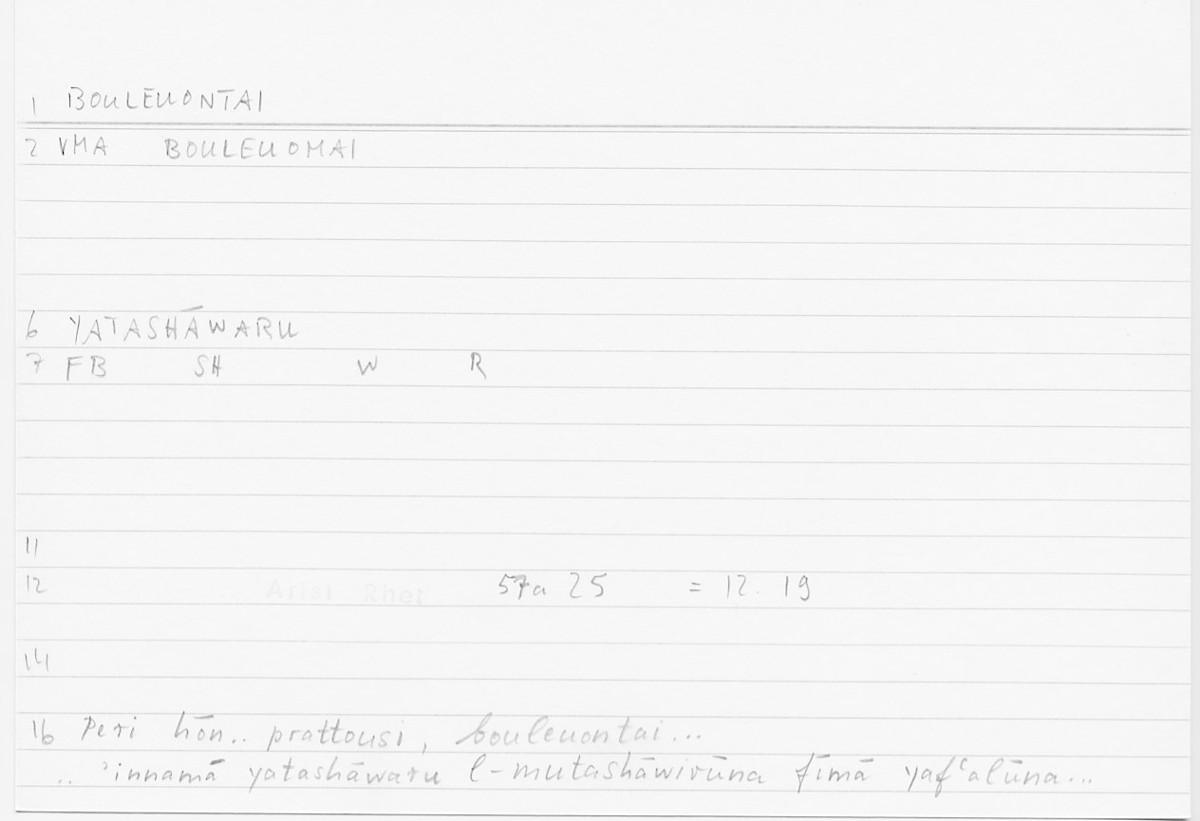 1 BOULEUONTAI
2 VMA BOULEUOMAI
6 YATASHĀWARU
7 FB SH W R
11
12 Arist Rhet 57a 25 = 12. 19
14
16 Peri hōn.. prattousi, bouleuontai...
.. ʾinnamā yatashāwaru l-mutashāwirūna fīmā yafʿalūna...